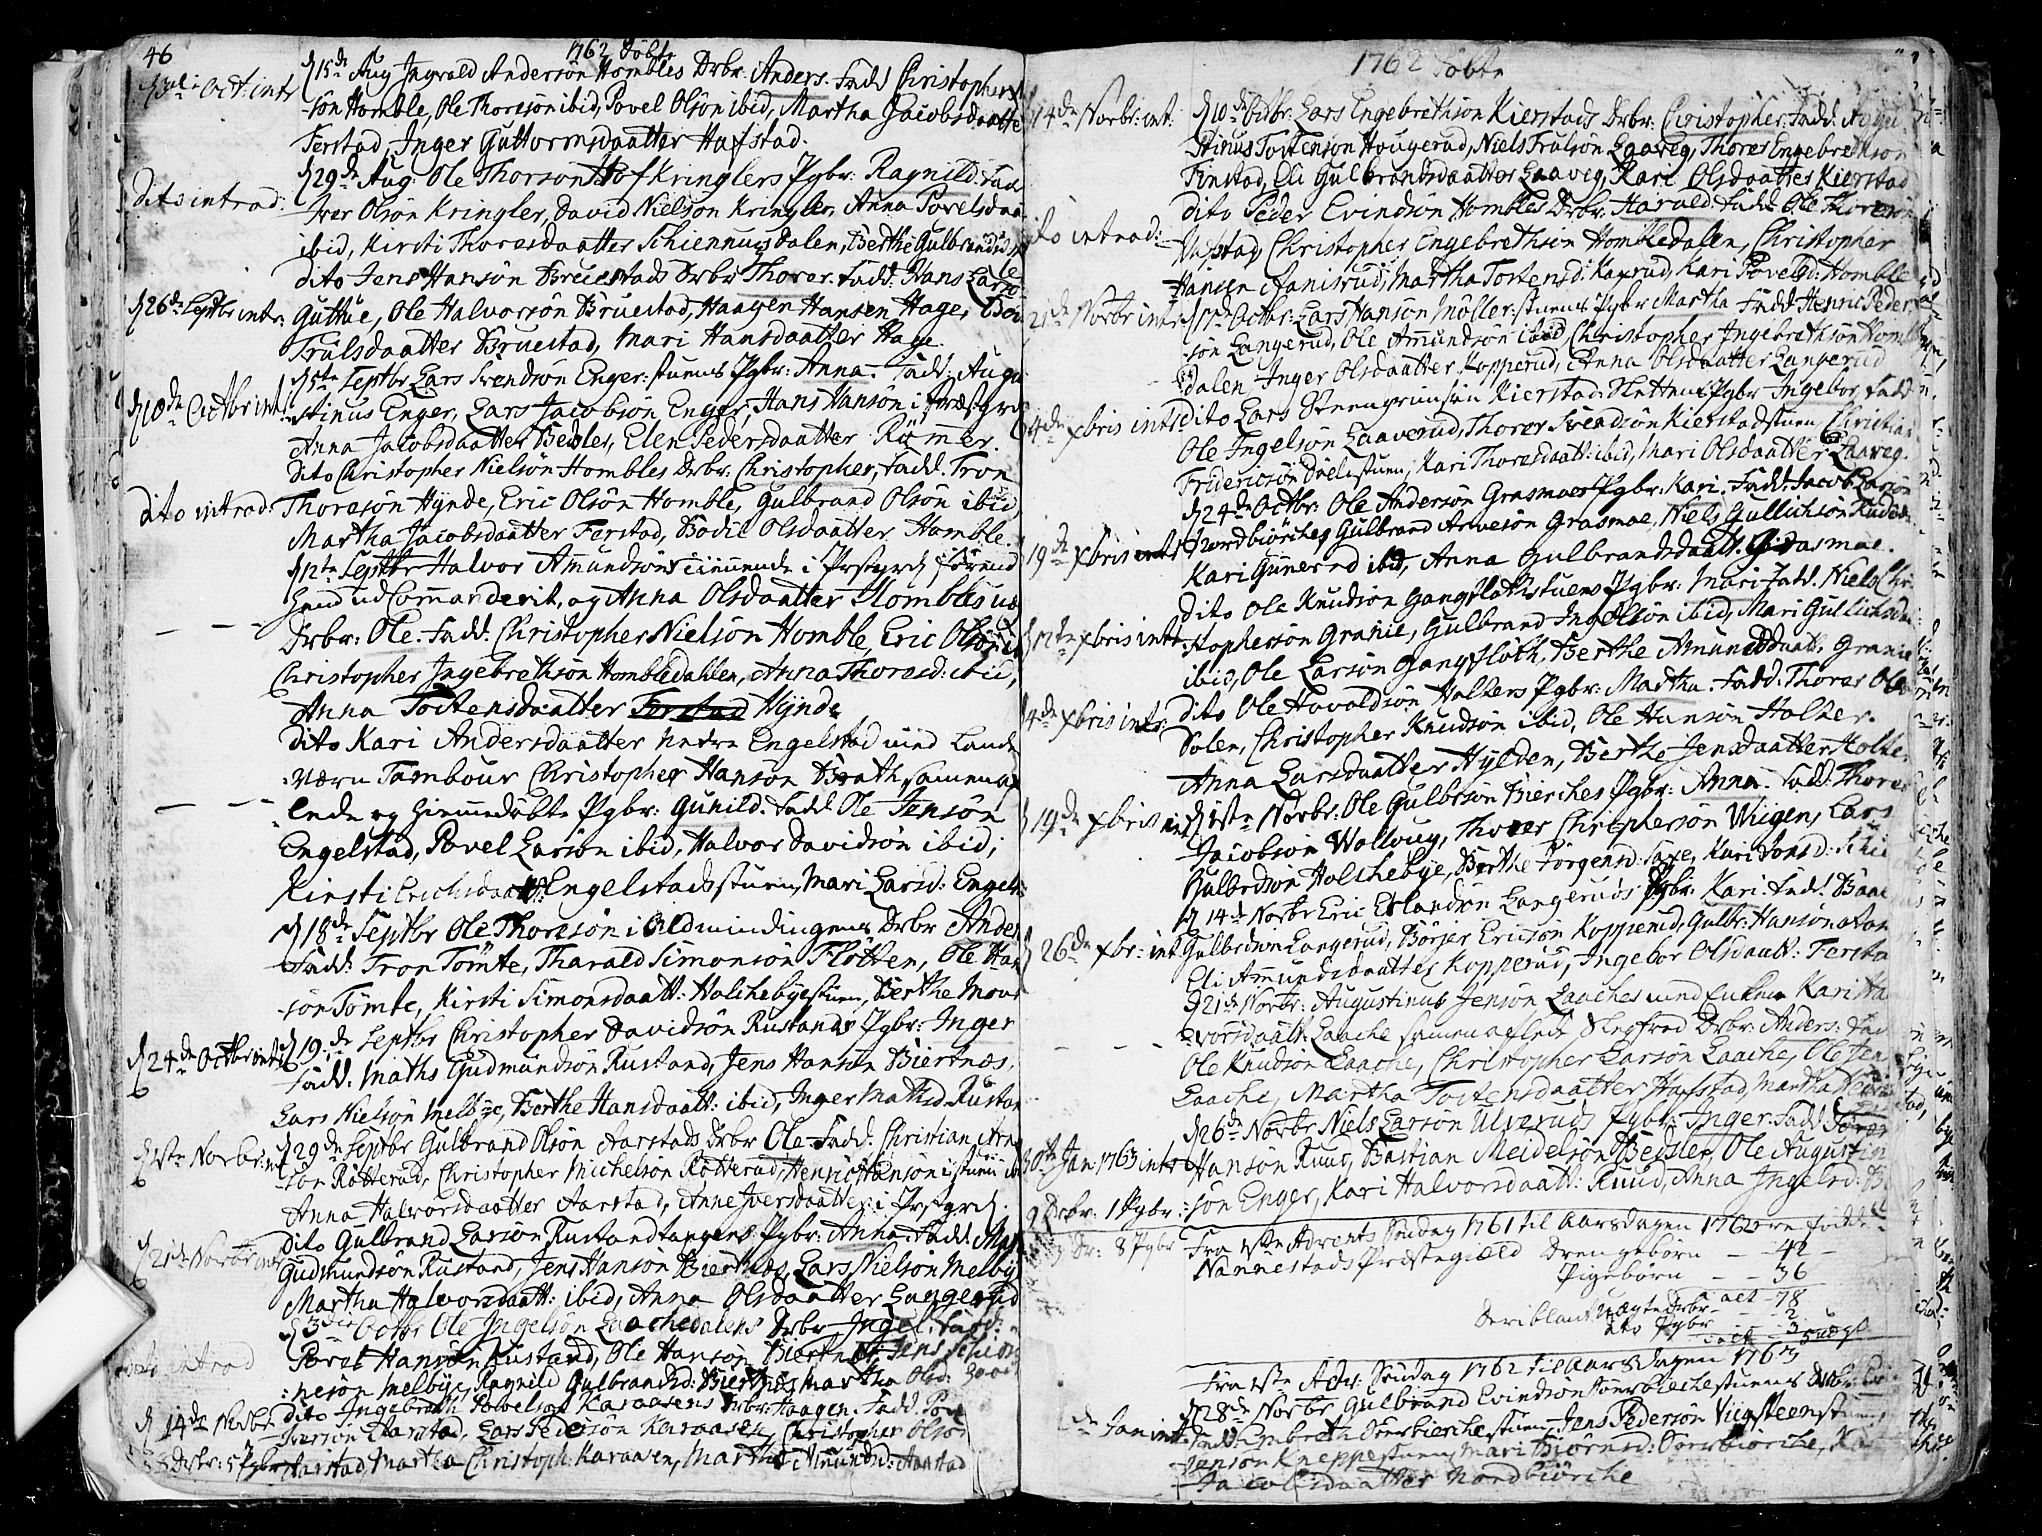 46
1762 Döbte
d 3die Oct: intr
d 15de Aug Ingvald Andersön Hombles Drbr: Anders. Fadd Christophers
sön Homble, Ole Thoresön ibid, Povel Olsön ibid, Martha Jacobsdaatter
Ferstad, Inger Guttormsdaatter Hafstad.
Dito introd:
d 29de Aug: Ole Thorsön Hof Kringlers Pgbr: Ragnild. Fad
Iver Olsön Kringler, David Nielsön Kringler, Anna Povelsdaa
ibid, Kirsti Thoresdaatter Schiennusdalen, Berthe Gulbrandsd
Dito Jens Hansön Bruestads Drbr Thorer. Fadd: Hans Larsö
d 26de Septbr intr:
Guttue, Ole Halvorsön Bruestad, Haagen Hansen Hage,
Trulsdaatter Bruestad, Mari Hansdaatter Hage
d 10de Octbr int:
d 5te Septbr Lars Svendsön Enger-stuens Pgbr: Anna. Fadd: Augu
stinus Enger, Lars Jacobsön Enger, Hans Hansön i Præstgrd
Anna Jacobsdaatter Bedsler, Elen Pedersdaatter Römmer
Dito Christopher Nielsön Hombles Drbr: Christopher, Fadd. Tron
dito introd:
Thoresön Hÿnde, Eric Olsön Homble, Gulbrand Olsön ibid
Martha Jacobsdaatter Ferstad, Bodil Olsdaatter Homble.
d 12te Septbr Halvor Amundsön tienende i Prstgrd förend
hand ud Commanderit, og Anna Olsdaatter Hombles
Drbr: Ole. Fadd: Christopher Nielsön Homble, Eric Olsön
Christopher Ingebrethsön Hombledahlen, Anna Thoresd: ibid,
Anna Tostensdaatter Ferstad Hÿnde
Dito Kari Andersdaatter nedre Engelstad med Land
værn Tambour Christopher Hansön Brath sammenaf
lende og hiemmedöbte Pgbr: Gunild. Fadd Ole Jensön
Engelstad, Povel Larsön ibid, Halvor Davidsön ibid,
Kirsti Erichsdaatt: Engelstadsstuen, Mari Larsd: Engels
d 18de Septbr Ole Thoresön i Oldmindingens Drbr Anders
Fadd: Tron Tömte, Tharald Simonsön Flötten, Ole Han
sön Tömte, Kirsti Simonsdaatt: Holchebÿestuen, Berthe
d 24de Octbr intr
d 19de Septbr Christopher Davidsön Rustands Pgbr: Inger
Fadd: Maths Gudmundsön Rustand, Jens Hansön Biertnæs,
Lars Nielsön Melbÿe, Berthe Hansdaatt: ibid, Inger Mathsd Rustan
d 1ste Novbr: int
d 29de Septbr Gulbrand Olsön Aarstads Drbr Ole Fadd: Christian
sön Rötterud, Christopher Michelsön Rötterud, Henric Hansön
Anna Halvorsdaatter Aarstad, Anne Iversdaatter i Prstgrd.
d 21de Novbr intr
Dito Gulbrand Larsön Rustandtangens Pgbr: Anna. Fadd Mat
Gudmundsön Rustand, Jens Hansön Biertnæs, Lars Nielsön Melbÿ
Martha Halvorsdaatt: ibid, Anna Olsdaatter Langerud
d 3die Octbr Ole Ingelsön Laachedalens Drbr Ingel. Fadd:
dito introd
Povel Hansön Rustand, Ole Hansön Biertnæs, Jens
nesön Melbÿe, Ragnild Gulbrandsd: Biertnæs Martha Olsd:
d 14de Novbr
dito Ingebreth Povelsön Karaasens Drbr: Haagen. Fadd. Povel
Iversön Aarstad, Lars Pedersön Karaasen, Christopher Olsön
Drbr: 5 Pgbr
Aarstad, Martha Christoph: Karaasen, Martha Amundsd: Aarstad
1762 Döbte
14de Novbr: int:
d 10de Octbr: Lars Engebrethsön Kierstads Drbr: Christopher. Fadd. Augu
stinus Tostensön Hougerud, Niels Trulsön Laaveg, Thorer Engebrethsön
Finstad, Eli Gulbrandsdaatter Laaveg, Kari Olsdaatter Kierstad
dito introd:
Dito Peder Evindsön Hombles Drbr. Harald. Fadd Ole Thoresön
Hafstad, Christopher Engebrethsön Hombledalen, Christopher
Hansen Aanisrud, Martha Tostensd: Kaprud, Kari Povelsd: Homble
21de Novbr intr
d 17de Octbr: Lars Hansön Möller-stuens Pgbr Martha Fadd Henric Peder
sön Langerud, Ole Amundsön ibid, Christopher Ingebrethsön Homb
dalen Inger Olsdaatter Kopperud, Anna Olsdaatter Langerud
4de xbris intr
Dito Lars Steengrimsön Kierstad-Slettens Pgbr Ingebor, Fadd
Ole Ingelsön Laaverud, Thorer Svendsön Kierstadstuen, Christian
Fridericsön Dælistuen, Kari Thoresdaatt: ibid, Mari Olsdaatter Laaveg.
d 24de Octbr: Ole Andersön Grasmoes Pgbr. Kari. Fadd: Jacob Larsön
19de xbris intr
Nordbiörche, Gulbrand Arvesön Grasmoe, Niels Gullichsön Rud
Kari Gunersd ibid, Anna Gulbrandsdaatt. Grasmoe.
Dito Ole Knudsön Gangflothstuens Pgbr: Mari. Fadd. Niels Chri
d 12te xbris intr:
stophersön Granie, Gulbrand Ingelsön ibid, Mari Gullichsda
ibid, Ole Larsön Gangfloth, Berthe Amundsdaatt. Granie
4de xbris intr:
Dito Ole Hovaldsön Holkers Pgbr: Martha. Fadd: Thorer Ols
Solen, Christopher Knudsön ibid, Ole Hansön Holker.
Anna Larsdaatter Hÿlden, Berthe Jensdaatter Holke
19de xbris int
d 1ste Novbr: Ole Gulbrsön Bierches Pgbr: Anna. Fadd: Thorer
Jacobsön Wollaug, Thorer Christophersön Wiigen, Lars
Gulbrdsön Holchebÿe, Berthe Jörgensd: Saxe, Kari Jonsd:
d 14de Novbr Eric Erlandsön Langeruds Pgbr: Kari. Fadd:
d 26de xbr: int
Gulbrdsön Langerud, Börger Ericsön Kopperud, Gulbr: Hansön
Eli Amundsdaatter Kopperud, Ingebor Olsdaatt: Fersta
d 21de Novbr: Augustinus Jensön Laaches med Enken Kari Ha
vorsdaatt: Laache sammenaflede Slegfred Drbr: Anders: Fad
Ole Knudsön Laache, Christopher Larsön Laache, Ole Jen
Laache, Martha Tostensdaatter Hafstad, Martha
d 26de Novbr Niels Larsön Ulveruds Pgbr: Inger. Fadd
30te Jan: 1763 intr
Hansön Ruud, Bastian Meidelsön Bedsler, Ole Augustin
sön Enger, Kari Halvorsdaatt: Ruud, Anna Ingelsd:
9 Drbr: 1 Pgbr:
Dr: 8 Pgbr
Fra 1ste Advents Söndag 1761 til Aarsdagen 1762 ere födde
Nannestads Præstegiæld Drengebörn — 42
Pigebörn — 36
Facit 78
Deriblant Uægte Drbr — 2
dito Pgbr — 3
Facit 5 uægte
Fra 1ste Adv: Söndag 1762 til Aarsdagen 1763
d 28de Novbr Gulbrand Evindsön Sönrbierchestuens Drbr:
de Jan int
Fadd: Embreth Sönrbierchestuen, Jens Pedersön Viigsteenst
Jensön Kneppestuen, Mari Biörnsd: Sönrbiörche, Ka
Jacobsdaatter Nordbiörche